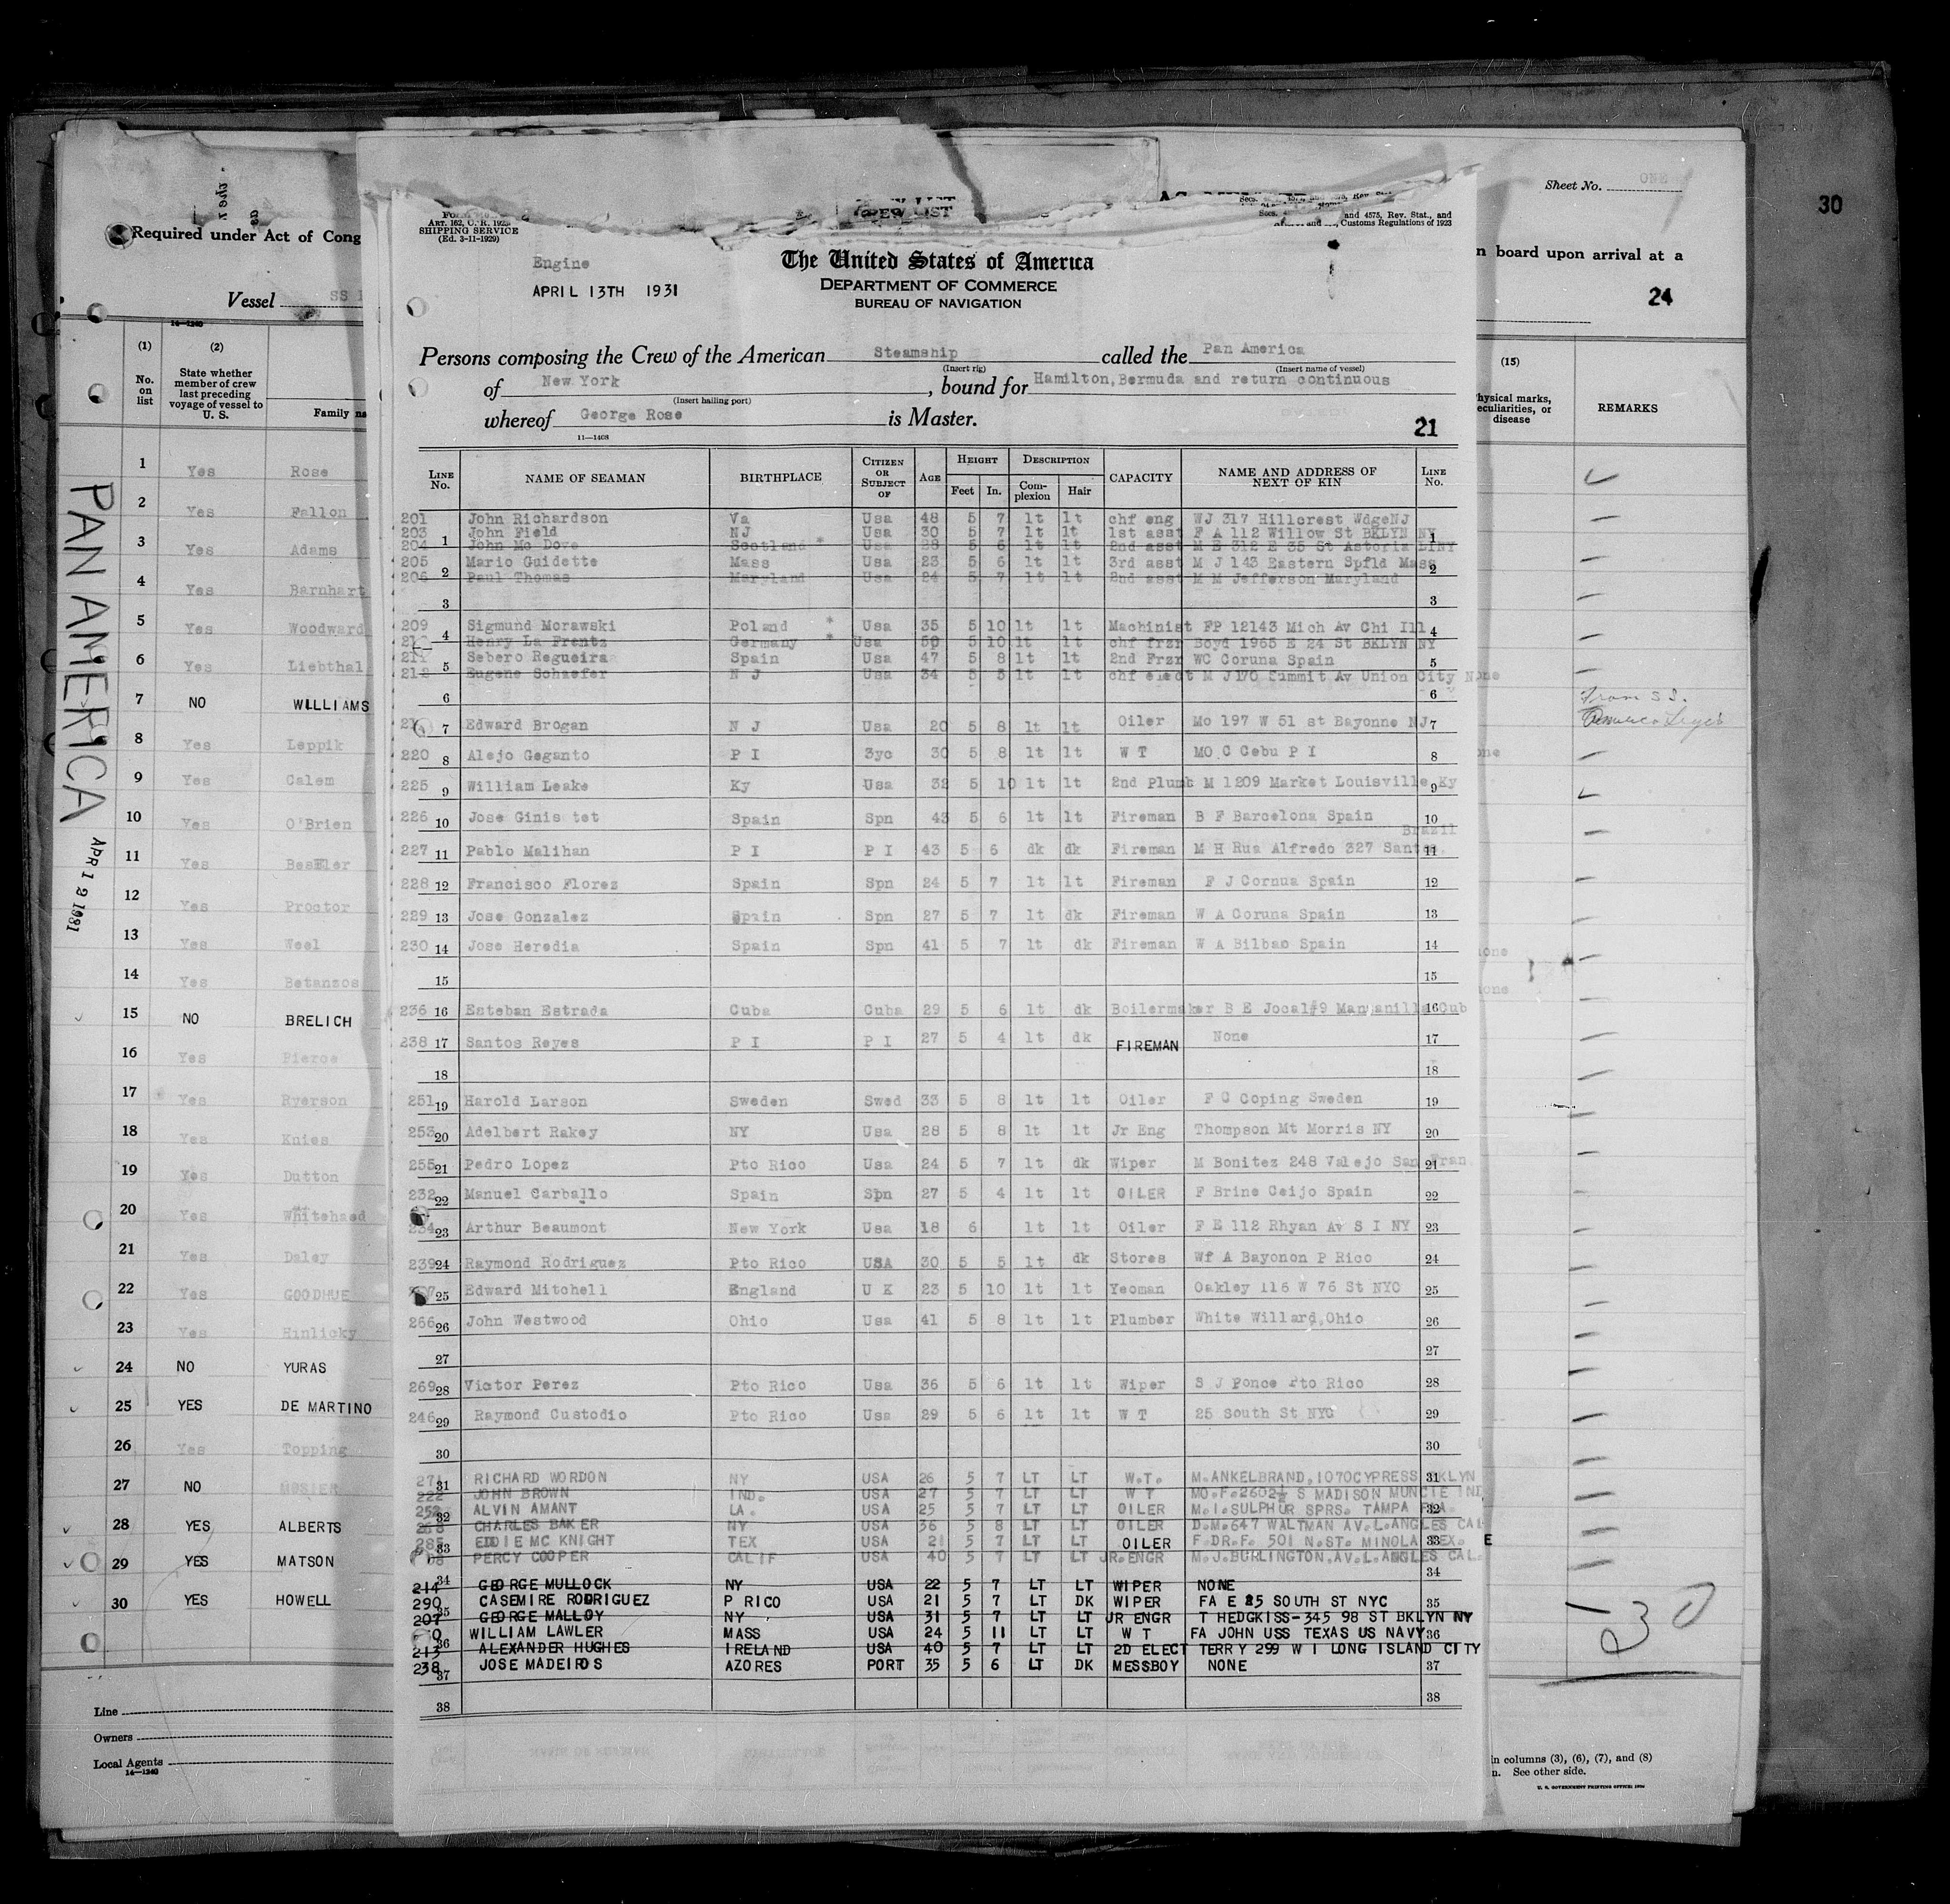 Sheet No. ONE
30
Required under Act of Cong
n board upon arrival at a
Vessel SS
24
14—1240
(1) (2) (15)
No. on list
State whether member of crew last preceding voyage of vessel to U. S.
Family na
Physical marks, peculiarities, or disease
REMARKS
PAN AMERICA
APR 12 1931
1 Yes Rose
2 Yes Fallon
3 Yes Adams
4 Yes Barnhart
5 Yes Woodward
6 Yes Liebthal
7 NO WILLIAMS
8 Yes Leppik
9 Yes Calem
10 Yes O'Brien
11 Yes
12 Yes Proctor
13 Yes Weel
14 Yes Betanzos
15 NO BRELICH
16 Yes Pierce
17 Yes Ryerson
18 Yes Knies
19 Yes Dutton
20 Yes
21 Yes Daley
22 Yes GOODHUE
23 Yes Hinlicky
24 NO YURAS
25 YES DE MARTINO
26 Yes Topping
27 NO MOSIER
28 YES ALBERTS
29 YES MATSON
30 YES HOWELL
Line
Owners
Local Agents
14—1240
from SS.
30
in columns (3), (6), (7), and (8)
n. See other side.
U. S. GOVERNMENT PRINTING OFFICE
ART. 162, C. R. 1923
SHIPPING SERVICE
(Ed. 3-11-1929)
and 4575, Rev. Stat., and
Customs Regulations of 1923
Engine
APRIL 13TH 1931
The United States of America
DEPARTMENT OF COMMERCE
BUREAU OF NAVIGATION
Persons composing the Crew of the American Steamship called the Pan America
(Insert rig) (Insert name of vessel)
of New York, bound for Hamilton,Bermuda and return continuous
(Insert hailing port)
whereof George Rose is Master.
11—1408
21
LINE No. NAME OF SEAMAN BIRTHPLACE CITIZEN OR SUBJECT OF AGE HEIGHT Feet In. DESCRIPTION Complexion Hair CAPACITY NAME AND ADDRESS OF NEXT OF KIN LINE No.
201 John Richardson Va Usa 48 5 7 lt lt chf eng WJ 317 Hillcrest WdgeNJ
203 John Field NJ Usa 30 5 7 lt lt 1st asst F A 112 Willow St BKLYN NY
204 1 John Mc Dove Scotland * Usa 28 5 6 lt lt 2nd asst M E 312 E 35 St Astoria LINY 1
205 Mario Guidette Mass Usa 23 5 6 lt lt 3rd asst M J 143 Eastern Spfld Mass
206 2 Paul Thomas Maryland Usa 24 5 7 lt lt 2nd asst M M Jefferson Maryland 2
3 3
209 Sigmund Morawski Poland * Usa 35 5 10 lt lt Machinist FP 12143 Mich Av Chi Ill
4 Henry La Frentz Germany * Usa 50 5 10 lt lt chf frzr Boyd 1965 E 24 St BKLYN NY 4
211 Sebero Regueira Spain Usa 47 5 8 lt lt 2nd Frzr WC Coruna Spain
212 5 Eugene Schaefer N J Usa 34 5 5 lt lt chf elect M J 170 Summit Av Union City N 5
6 6
7 Edward Brogan N J Usa 20 5 8 lt lt Oiler Mo 197 W 51 st Bayonne NJ 7
220 8 Alejo Geganto P I 3yc 30 5 8 lt lt W T MO C Cebu P I 8
225 9 William Leake Ky Usa 32 5 10 lt lt 2nd Plumb M 1209 Market Louisville Ky 9
226 10 Jose Ginis tet Spain Spn 43 5 6 lt lt Fireman B F Barcelona Spain 10
Brazil
227 11 Pablo Malihan P I P I 43 5 6 dk dk Fireman M H Rua Alfredo 327 Santos 11
228 12 Francisco Florez Spain Spn 24 5 7 lt lt Fireman F J Cornua Spain 12
229 13 Jose Gonzalez Spain Spn 27 5 7 lt dk Fireman W A Coruna Spain 13
230 14 Jose Heredia Spain Spn 41 5 7 lt dk Fireman W A Bilbao Spain 14
15 15
236 16 Esteban Estrada Cuba Cuba 29 5 6 lt dk Boilermaker B E Jocal#9 Manzanilla Cub 16
238 17 Santos Reyes P I P I 27 5 4 lt dk FIREMAN None 17
18 18
251 19 Harold Larson Sweden Swed 33 5 8 lt lt Oiler F C Coping Sweden 19
253 20 Adelbert Rakey NY Usa 28 5 8 lt lt Jr Eng Thompson Mt Morris NY 20
255 21 Pedro Lopez Pto Rico Usa 24 5 7 lt dk Wiper M Bonitez 248 Valejo San Fran 21
232 22 Manuel Carballo Spain Spn 27 5 4 lt lt OILER F Brine Ceijo Spain 22
234 23 Arthur Beaumont New York Usa 18 6 lt lt Oiler F E 112 Rhyan Av S I NY 23
239 24 Raymond Rodriguez Pto Rico USA 30 5 5 lt dk Stores Wf A Bayonon P Rico 24
25 Edward Mitchell England U K 23 5 10 lt lt Yeoman Oakley 116 W 76 St NYC 25
266 26 John Westwood Ohio Usa 41 5 8 lt lt Plumber White Willard,Ohio 26
27 27
269 28 Victor Perez Pto Rico Usa 36 5 6 lt lt Wiper S J Ponce Pto Rico 28
246 29 Raymond Custodio Pto Rico Usa 29 5 6 lt lt W T 25 South St NYC 29
30 30
271 31 RICHARD WORDON NY USA 26 5 7 LT LT W.T. M.ANKELBRAND,1070CYPRESS BKLYN 31
222 JOHN BROWN IND. USA 27 5 7 LT LT W T MO.F.2602½ S MADISON MUNCIE IND
252 32 ALVIN AMANT LA. USA 25 5 7 LT LT OILER M.I.SULPHUR SPRS. TAMPA FLA. 32
268 CHARLES BAKER NY USA 36 5 8 LT LT OILER D.M.647 WALTMAN AV.L.ANGLES CAL
285 33 EDDIE MC KNIGHT TEX USA 21 5 7 LT LT OILER F.DR.F. 501 N.ST. MINOLA TEX. 33 E
PERCY COOPER CALIF USA 40 5 7 LT LT JR.ENGR M.J.BURLINGTON.AV.L.ANGLES CAL.
34 34
214 GEORGE MULLOCK NY USA 22 5 7 LT LT WIPER NONE
290 35 CASEMIRE RODRIGUEZ P RICO USA 21 5 7 LT DK WIPER FA E 25 SOUTH ST NYC 35
207 GEORGE MALLOY NY USA 31 5 7 LT LT JR ENGR T HEDGKISS-345 98 ST BKLYN NY
36 WILLIAM LAWLER MASS USA 24 5 11 LT LT W T FA JOHN USS TEXAS US NAVY 36
213 ALEXANDER HUGHES IRELAND USA 40 5 7 LT LT 2D ELECT TERRY 299 W I LONG ISLAND CITY
238 37 JOSE MADEIROS AZORES PORT 35 5 6 LT DK MESSBOY NONE 37
38 38